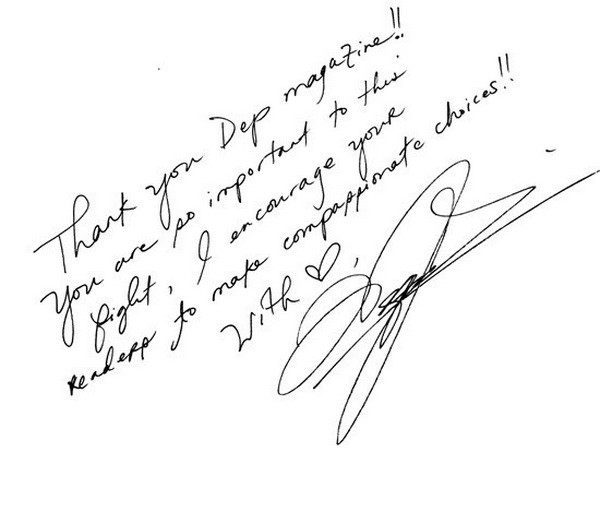 Thank you Dep magazine!!
You are so important to this
fight, I encourage your
readers to make compassionate choices!!
With ♡,